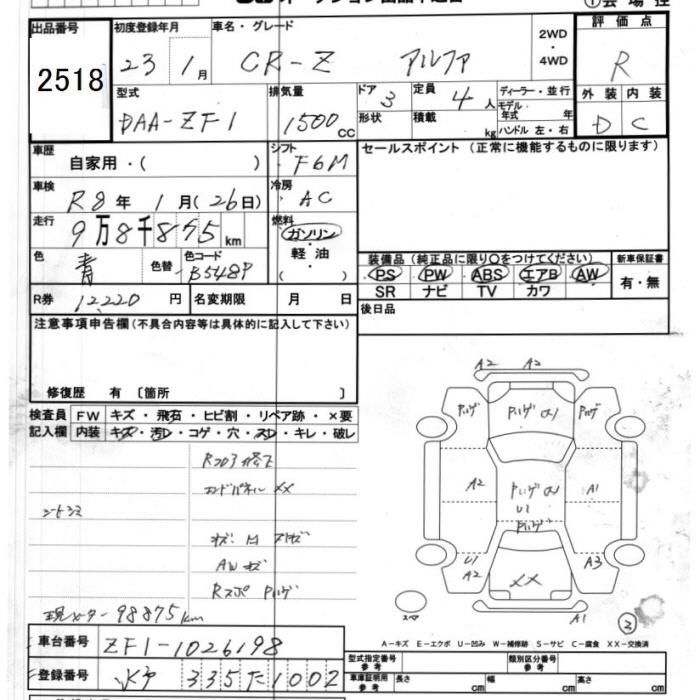 ①会場控
出品番号
2518
初度登録年月
23 1月
車名・グレード
CR-Z アルファ
2WD
・
4WD
評価点
R
外装 内装
D C
型式
DAA-ZF1
排気量
1500cc
ドア 3
形状
定員 4人
積載 kg
ディーラー・並行
モデル年式 年
ハンドル 左・右
車歴
自家用・( )
シフト
F6M
セールスポイント (正常に機能するものに限ります)
車検
R8年 1月(26日)
冷房
AC
走行
9万8千875km
燃料
ガソリン
・
軽油
( )
色
青
色替
色コード
B548P
R券 12,220円
名変期限 月 日
装備品(純正品に限り○をつけてください)
PS PW ABS エアB AW
SR ナビ TV カワ
新車保証書
有・無
後日品
注意事項申告欄(不具合内容等は具体的に記入して下さい)
修復歴 有 〔箇所 〕
検査員記入欄
FW キズ・飛石・ヒビ割・リペア跡・×要
内装 キズ・汚レ・コゲ・穴・スレ・キレ・破レ
エンドパネル XX
AWキズ
現メーター 98875km
A2 A2
A2
A1
U1
U1
A2
A3
XX
A1
スペア
③
A-キズ E-エクボ U-凹み W-補修跡 S-サビ C-腐食 XX-交換済
車台番号 ZF1-1026198
登録番号 335 た 1002
型式指定番号 参考
類別区分番号 参考
車庫証明用 参考 長さ cm 幅 cm 高さ cm